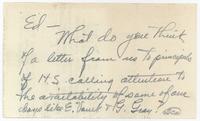 Ed —
What do you think
of a letter from us to principals
of H.S. calling attention to
the availability of some of our
boys like E. & G. Gray?